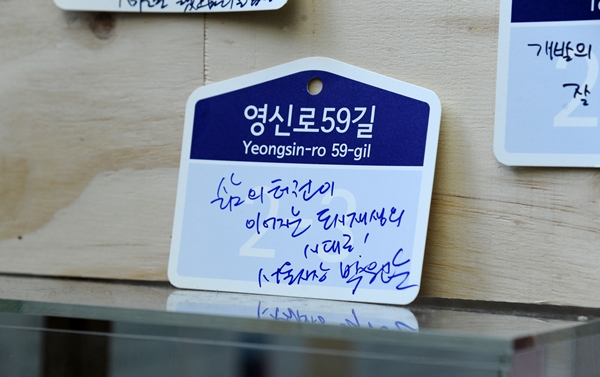 영신로59길
Yeongsin-ro 59-gil
삶의 터전이
이어지는 도시재생의
시대로!
서울시장 박원순
개발의
잘